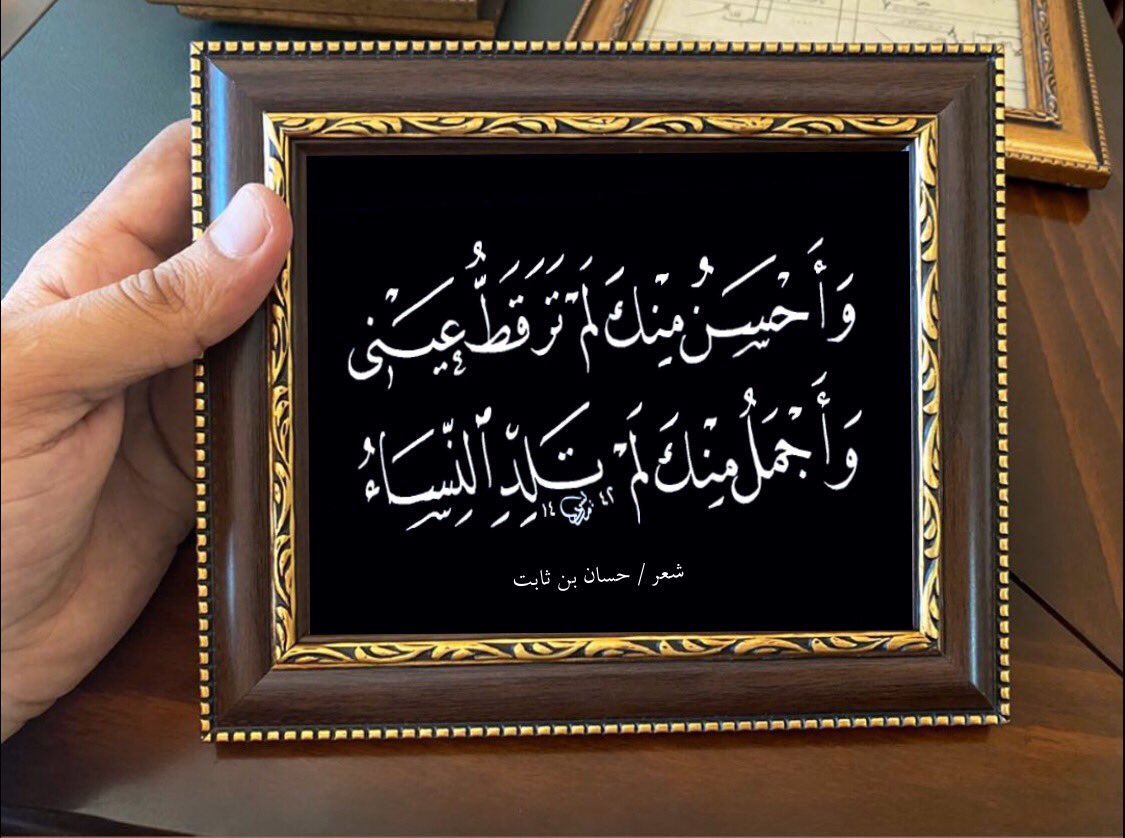 وَأَحْسَنُ مِنْكَ لَمْ تَرَ قَطُّ عَيْنِى
وَأَجْمَلُ مِنْكَ لَمْ تَلِدِ ٱلنِّسَاءُ
١٤ ٤٢
شعر / حسان بن ثابت